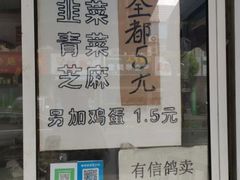 韭菜
青菜
芝麻
全都5元
另加鸡蛋 1.5元
有信鸽卖